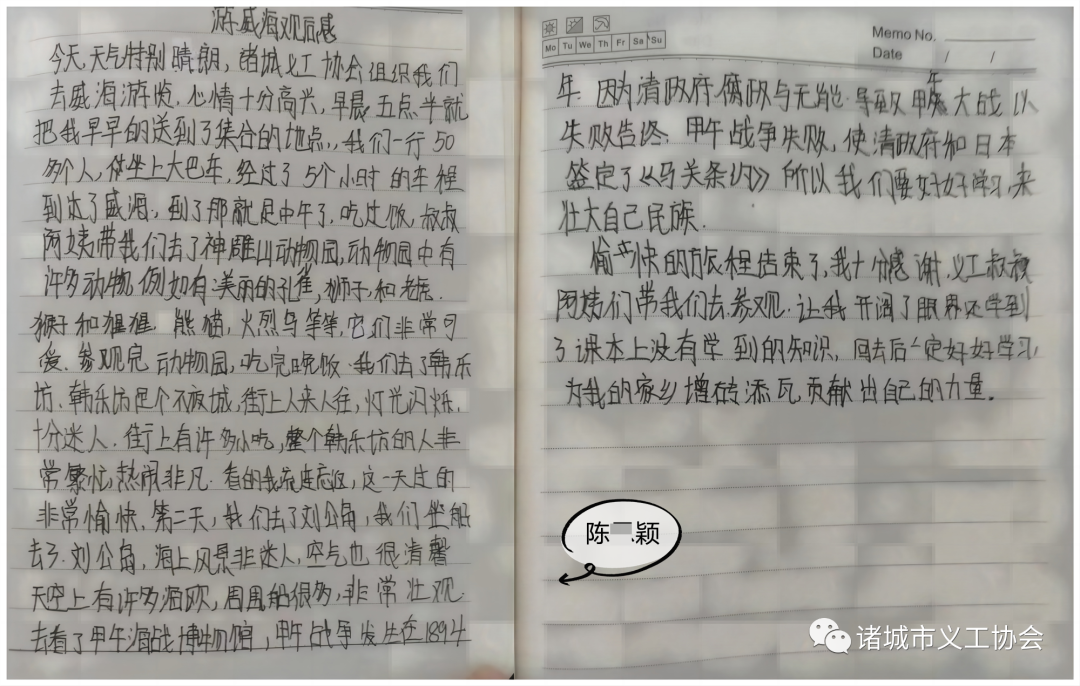 游威海观后感
今天,天气特别晴朗,诸城义工协会组织我们
去威海游览,心情十分高兴,早晨五点半就
把我早早的送到了集合的地点,,我们一行50
多个人,坐上大巴车,经过了5个小时的车程
到达了威海,到了那就是中午了,吃过饭,叔叔
阿姨带我们去了神雕山动物园,动物园中有
许多动物,例如有:美丽的孔雀,狮子,和老虎.
猴子和猩猩,熊猫,火烈鸟等等,它们非常可
爱.参观完动物园,吃完晚饭.我们去了韩乐
坊、韩乐坊是个不夜城,街上人来人往,灯光闪烁,
十分迷人.街上有许多小吃,整个韩乐坊的人非
常繁忙,热闹非凡.看的我流连忘返,这一天过的
非常愉快.第二天,我们去了刘公岛,我们坐船
去了刘公岛,海上风景非迷人,空气也很清馨
天空上有许多海欧,周围船很多,非常壮观.
去看了甲午海战博物馆,甲午战争发生在1894
Memo No.
Mo Tu We Th Fr Sa Su
Date / /
年.因为清政府腐败与无能.导致甲午大战以
失败告终.甲午战争失败,使清政府和日本
签定了《马关条约》所以我们要好好学习,来
壮大自己民族.
愉快的旅程结束了,我十分感谢.义工叔叔
阿姨们带我们去.参观.让我开阔了眼界还学到
了课本上没有学到的知识,回去后一定好好学习,
为我的家乡增砖添瓦贡献出自己的力量.
陈 颖
诸城市义工协会